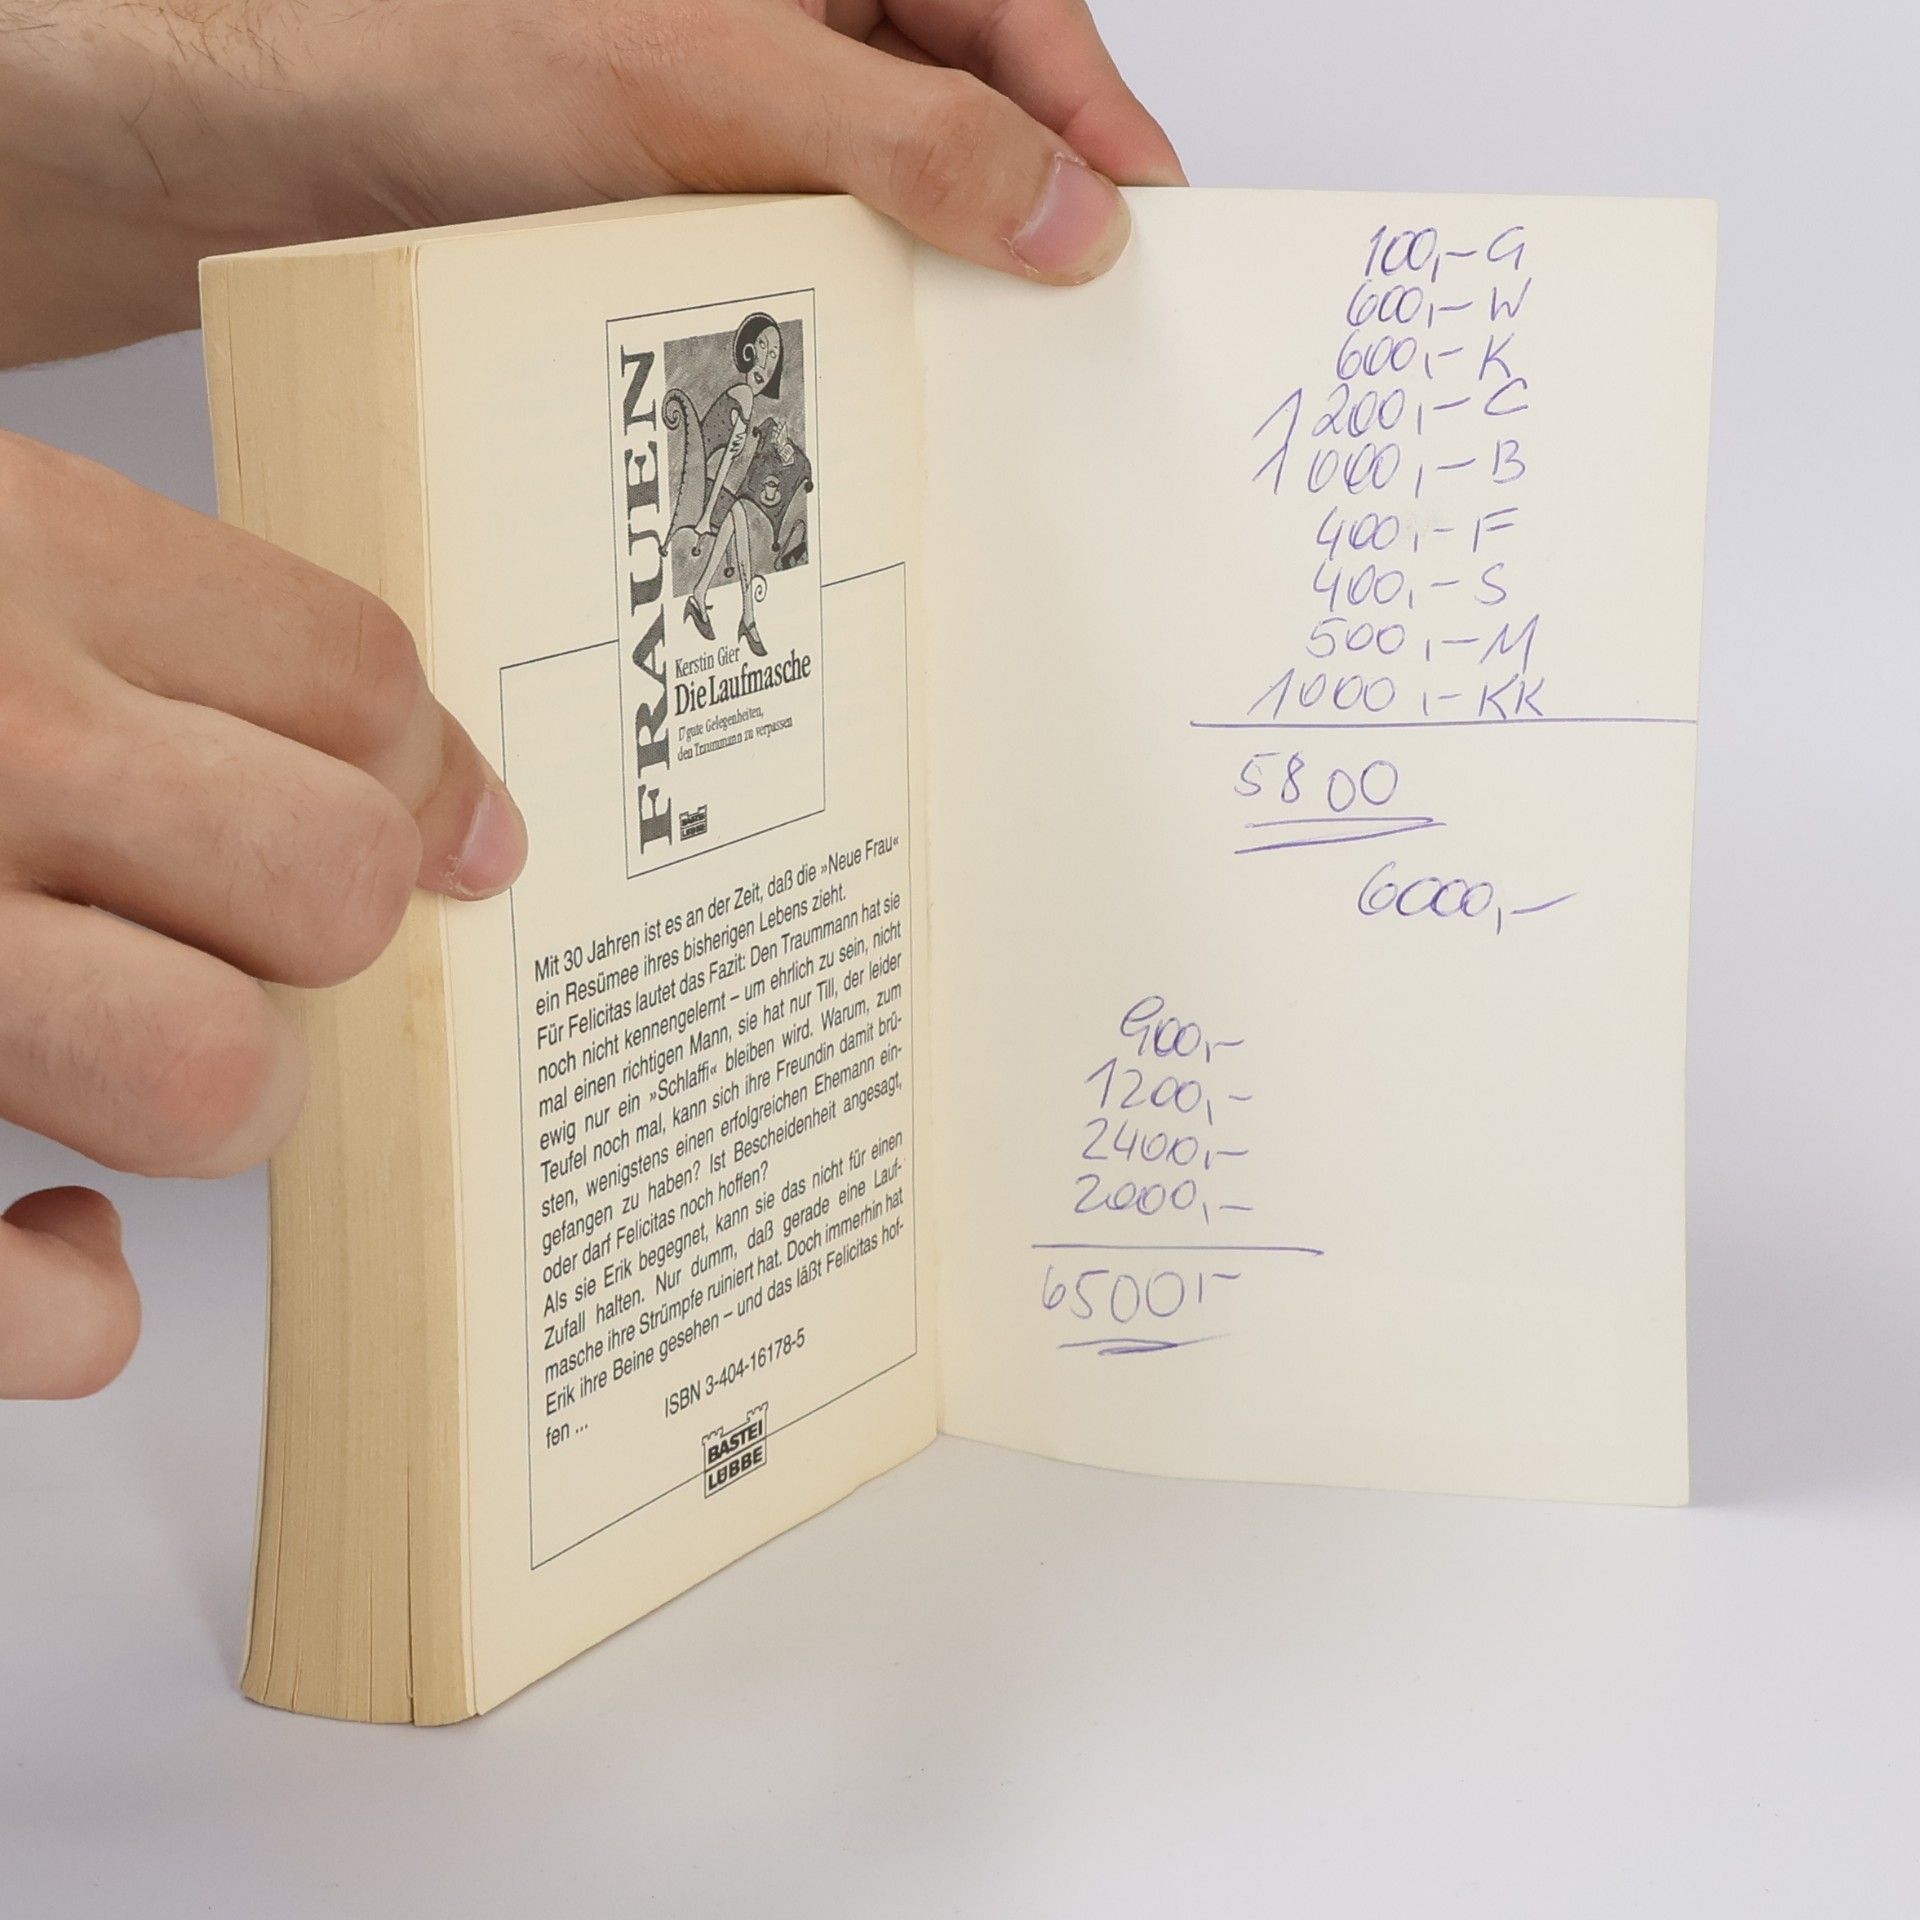 FRAUEN
Kerstin Gier
Die Laufmasche
17 gute Gelegenheiten,
den Traummann zu verpassen
BASTEI
LÜBBE
Mit 30 Jahren ist es an der Zeit, daß die »Neue Frau«
ein Resümee ihres bisherigen Lebens zieht.
Für Felicitas lautet das Fazit: Den Traummann hat sie
noch nicht kennengelernt – um ehrlich zu sein, nicht
mal einen richtigen Mann, sie hat nur Till, der leider
ewig nur ein »Schlaffi« bleiben wird. Warum, zum
Teufel noch mal, kann sich ihre Freundin damit brü-
sten, wenigstens einen erfolgreichen Ehemann ein-
gefangen zu haben? Ist Bescheidenheit angesagt,
oder darf Felicitas noch hoffen?
Als sie Erik begegnet, kann sie das nicht für einen
Zufall halten. Nur dumm, daß gerade eine Lauf-
masche ihre Strümpfe ruiniert hat. Doch immerhin hat
Erik ihre Beine gesehen – und das läßt Felicitas hof-
fen ...
ISBN 3-404-16178-5
BASTEI
LÜBBE
100,- G
600,- W
600,- K
1 200,- C
1 000,- B
400,- F
400,- S
500,- M
1000,- KK
5800
6000,-
900,-
1200,-
2400,-
2000,-
6500,-